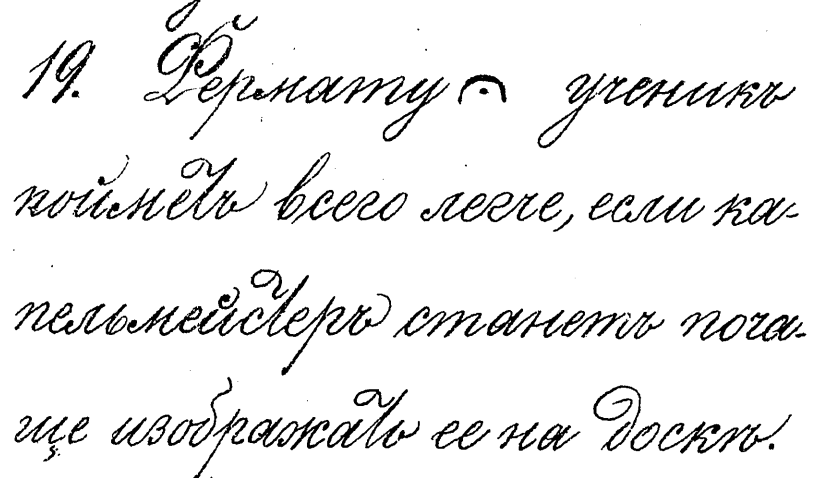 19. Фермату 𝄐 ученикъ
поймётъ всего легче, если ка-
пельмейстеръ станетъ поча-
ще изображать ее на доскѣ.